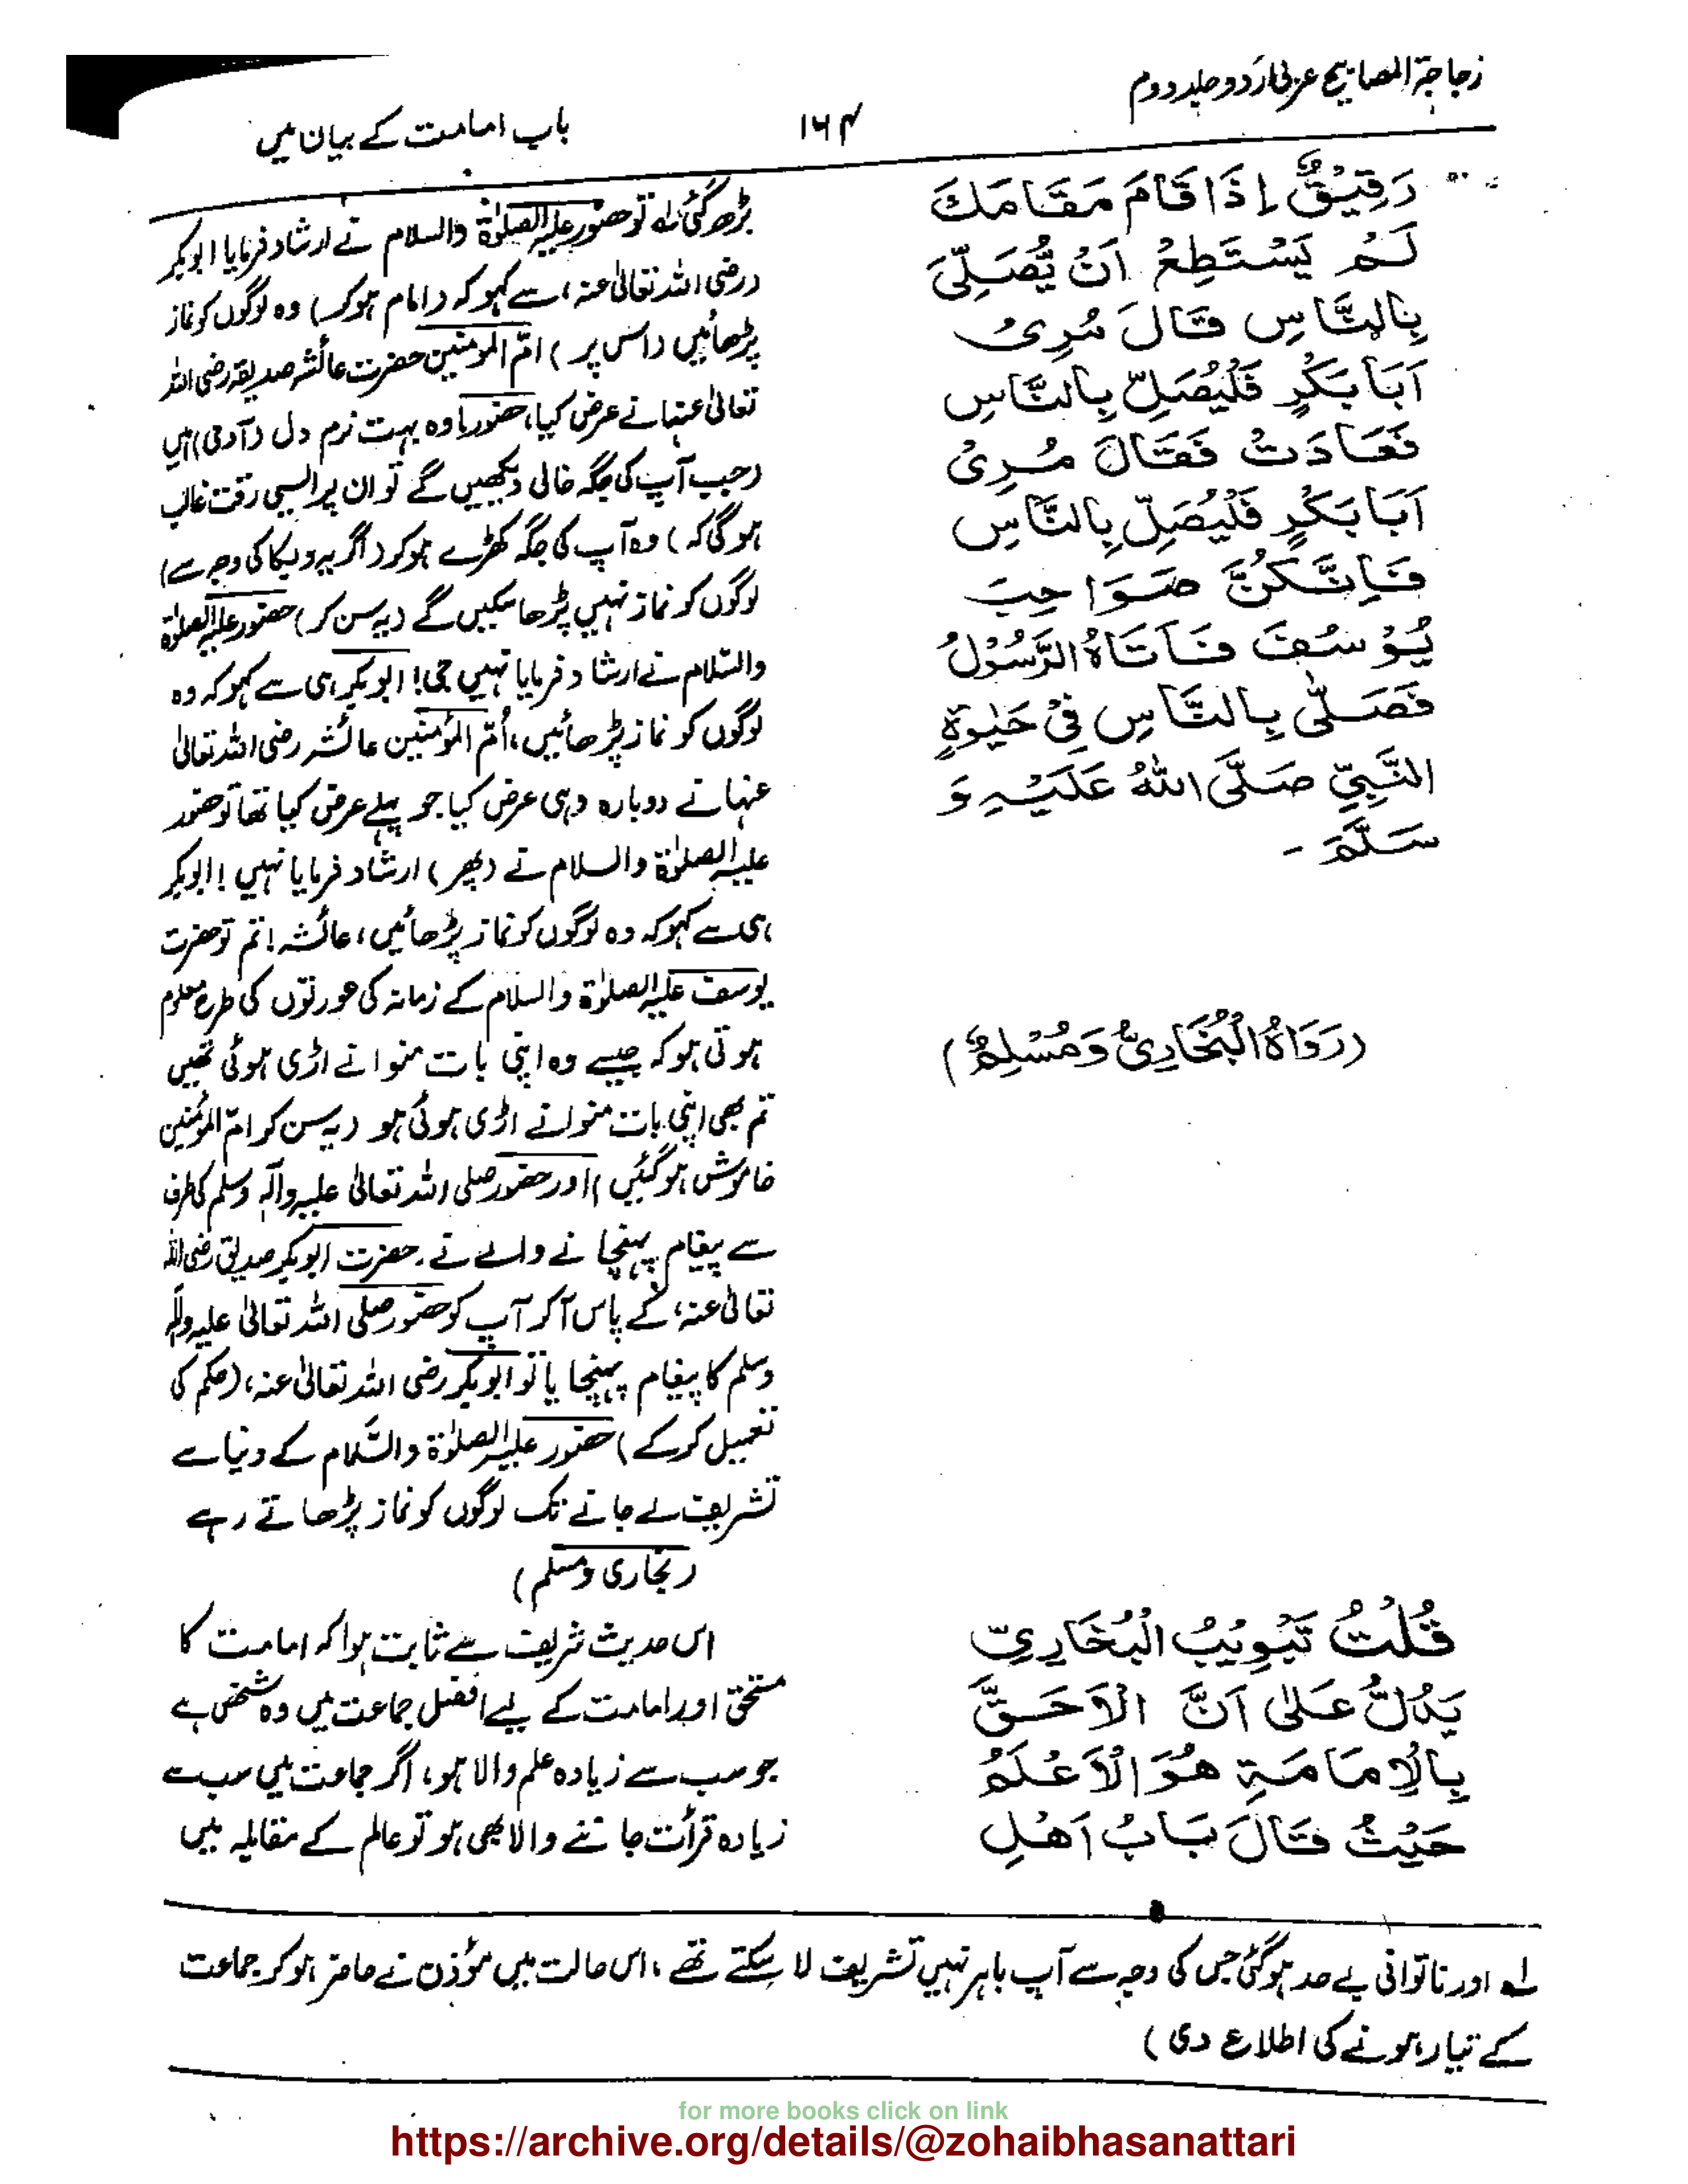 زجاجۃ المصابیح عربی اردو جلد دوم
۱۶۴
باب امامت کے بیان میں
رَقِيْقٌ اِذَا قَامَ مَقَامَكَ
لَمْ يَسْتَطِعْ اَنْ يُّصَلِّىَ
بِالنَّاسِ قَالَ مُرِىْ
اَبَا بَكْرٍ فَلْيُصَلِّ بِالنَّاسِ
فَعَادَتْ فَقَالَ مُرِىْ
اَبَا بَكْرٍ فَلْيُصَلِّ بِالنَّاسِ
فَاِنَّكُنَّ صَوَاحِبَ
يُوْسُفَ فَاَتَاهُ الرَّسُوْلُ
فَصَلّٰى بِالنَّاسِ فِىْ حَيٰوةِ
النَّبِىِّ صَلَّى اللهُ عَلَيْهِ وَ
سَلَّمَ -
(رَوَاهُ الْبُخَارِىُّ وَمُسْلِمٌ)
قُلْتُ تَبْوِيْبُ الْبُخَارِىِّ
يَدُلُّ عَلٰى اَنَّ الْاَحَقَّ
بِالْاِمَامَةِ هُوَ الْاَعْلَمُ
حَيْثُ قَالَ بَابُ اَهْلِ
بڑھ گئی لہ تو حضور علیہ الصلوٰۃ والسلام نے ارشاد فرمایا ابوبکر
(رضی اللہ تعالیٰ عنہ) سے کہو کہ (امام ہوکر) وہ لوگوں کو نماز
پڑھائیں (اس پر) امّ المومنین حضرت عائشہ صدیقہ رضی اللہ
تعالیٰ عنہا نے عرض کیا، حضور! وہ بہت نرم دل (آدمی) ہیں
(جب آپ کی جگہ خالی دیکھیں گے تو ان پر ایسی رقت غالب
ہوگی کہ) وہ آپ کی جگہ کھڑے ہوکر (گریہ وبکا کی وجہ سے)
لوگوں کو نماز نہیں پڑھا سکیں گے (یہ سن کر) حضور علیہ الصلوٰۃ
والسّلام نے ارشاد فرمایا نہیں جی! ابوبکر ہی سے کہو کہ وہ
لوگوں کو نماز پڑھائیں، اُمّ المؤمنین عائشہ رضی اللہ تعالیٰ
عنہا نے دوبارہ وہی عرض کیا جو پہلے عرض کیا تھا تو حضور
علیہ الصلوٰۃ والسلام نے (پھر) ارشاد فرمایا نہیں! ابوبکر
ہی سے کہو کہ وہ لوگوں کو نماز پڑھائیں، عائشہ! تم تو حضرت
یوسف علیہ الصلوٰۃ والسلام کے زمانہ کی عورتوں کی طرح معلوم
ہوتی ہو کہ جیسے وہ اپنی بات منوانے اڑی ہوئی تھیں
تم بھی اپنی بات منوانے اڑی ہوئی ہو (یہ سن کر امّ المؤمنین
خاموش ہوگئیں) اور حضور صلی اللہ تعالیٰ علیہ وآلہٖ وسلم کی طرف
سے پیغام پہنچانے والے نے حضرت ابوبکر صدیق رضی اللہ
تعالیٰ عنہ، کے پاس آکر آپ کو حضور صلی اللہ تعالیٰ علیہ وآلہٖ
وسلم کا پیغام پہنچایا تو ابوبکر رضی اللہ تعالیٰ عنہ، (حکم کی
تعمیل کرکے) حضور علیہ الصلوٰۃ والسّلام کے دنیا سے
تشریف لے جانے تک لوگوں کو نماز پڑھاتے رہے
(بخاری ومسلم)
اس حدیث شریف سے ثابت ہوا کہ امامت کا
مستحق اور امامت کے لیے افضل جماعت میں وہ شخص ہے
جو سب سے زیادہ علم والا ہو، اگر جماعت میں سب سے
زیادہ قرأت جاننے والا بھی ہو تو عالم کے مقابلہ میں
لہ اور ناتوانی بے حد ہوگئی جس کی وجہ سے آپ باہر نہیں تشریف لا سکتے تھے، اس حالت میں مؤذن نے حاضر ہوکر جماعت
کے تیار ہونے کی اطلاع دی)
for more books click on link
https://archive.org/details/@zohaibhasanattari